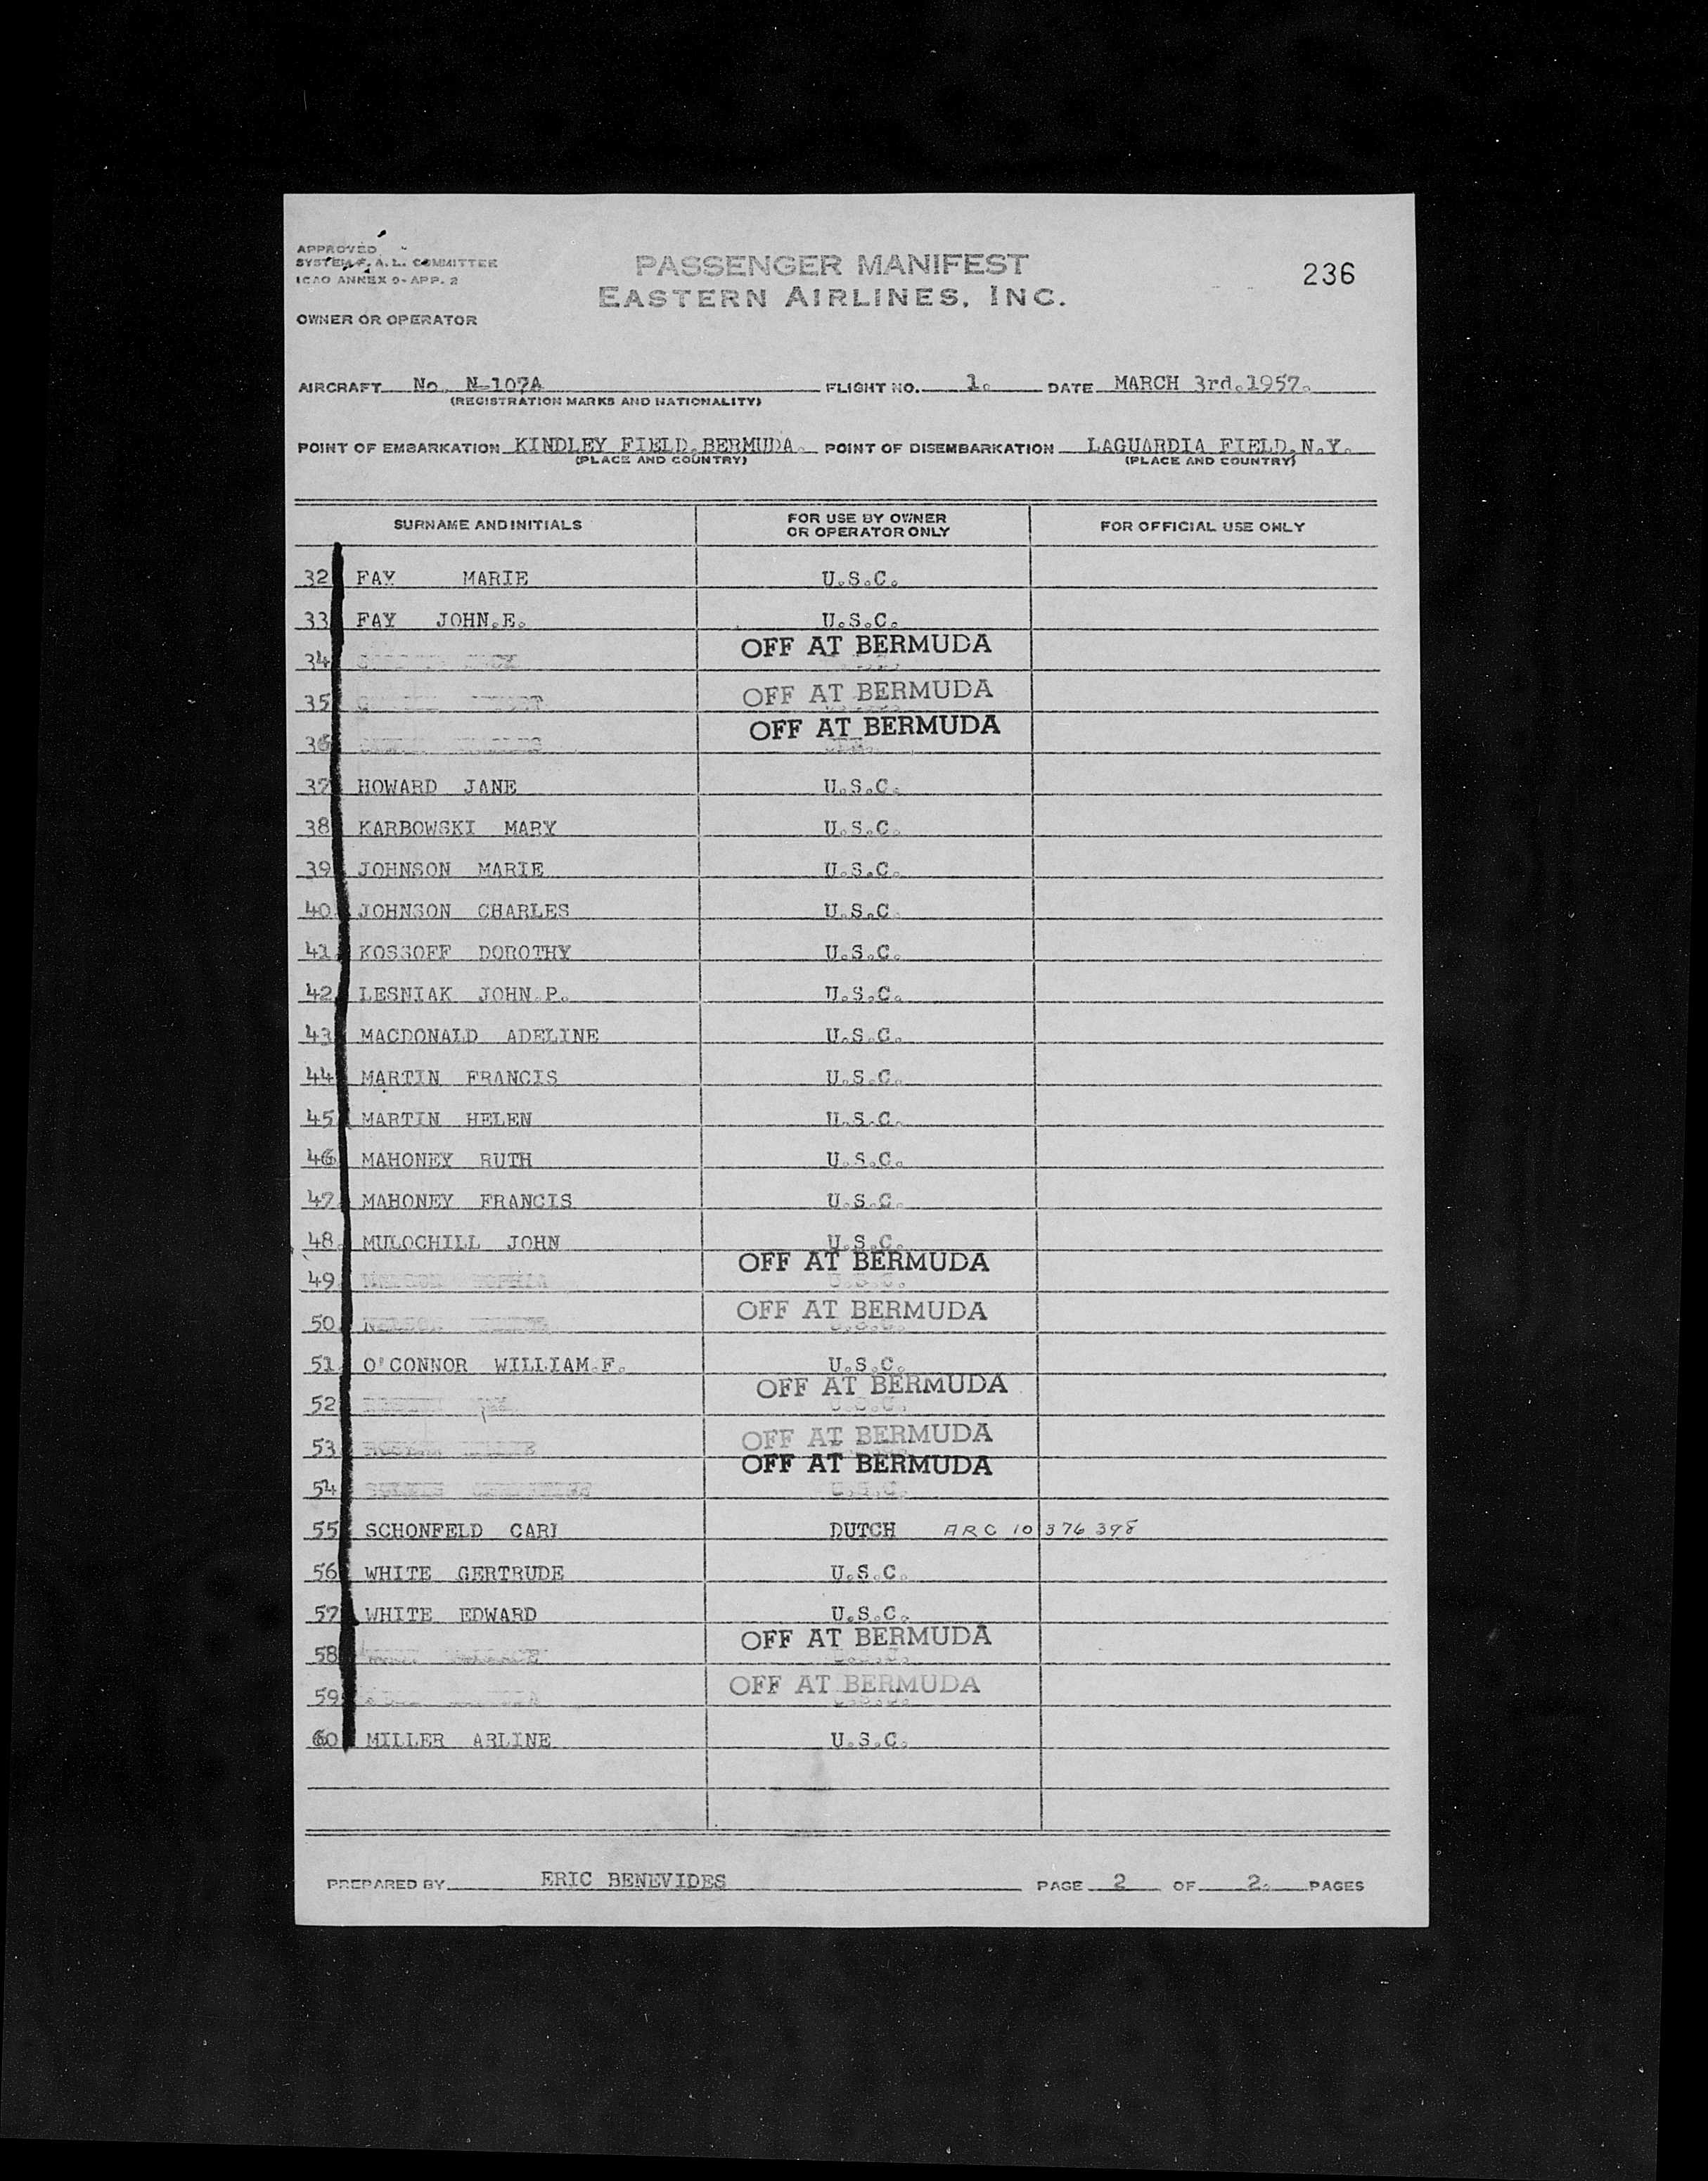 APPROVED
SYSTEM F. A. L. COMMITTEE
ICAO ANNEX 9- APP. 2
PASSENGER MANIFEST
EASTERN AIRLINES, INC.
236
OWNER OR OPERATOR
AIRCRAFT No. N-107A FLIGHT NO. 1. DATE MARCH 3rd.1957.
(REGISTRATION MARKS AND NATIONALITY)
POINT OF EMBARKATION KINDLEY FIELD.BERMUDA. POINT OF DISEMBARKATION LAGUARDIA FIELD.N.Y.
(PLACE AND COUNTRY) (PLACE AND COUNTRY)
SURNAME AND INITIALS FOR USE BY OWNER OR OPERATOR ONLY FOR OFFICIAL USE ONLY
32 FAY MARIE U.S.C.
33 FAY JOHN.E. U.S.C.
34 OFF AT BERMUDA
35 OFF AT BERMUDA
36 OFF AT BERMUDA
37 HOWARD JANE U.S.C.
38 KARBOWSKI MARY U.S.C.
39 JOHNSON MARIE U.S.C.
40 JOHNSON CHARLES U.S.C.
41 KOSSOFF DOROTHY U.S.C.
42 LESNIAK JOHN.P. U.S.C.
43 MACDONALD ADELINE U.S.C.
44 MARTIN FRANCIS U.S.C.
45 MARTIN HELEN U.S.C.
46 MAHONEY RUTH U.S.C.
47 MAHONEY FRANCIS U.S.C.
48 MULOCHILL JOHN U.S.C.
49 OFF AT BERMUDA U.S.C.
50 OFF AT BERMUDA
51 O'CONNOR WILLIAM.F. U.S.C.
52 OFF AT BERMUDA U.S.C.
53 OFF AT BERMUDA
54 OFF AT BERMUDA U.S.C.
55 SCHONFELD CARL DUTCH ARC 10 376 398
56 WHITE GERTRUDE U.S.C.
57 WHITE EDWARD U.S.C.
58 OFF AT BERMUDA
59 OFF AT BERMUDA
60 MILLER ARLINE U.S.C.
PREPARED BY ERIC BENEVIDES PAGE 2 OF 2. PAGES